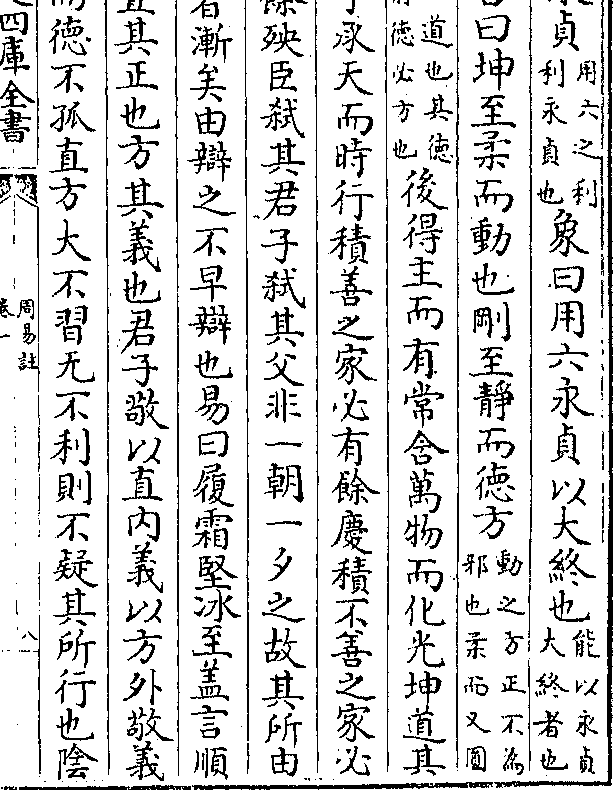 貞用六之利利永貞也象曰用六永貞以大終也能以永貞大終者也
曰坤至柔而動也剛至靜而德方動之方正不為邪也柔而又圓
道也其德德必方也後得主而有常含萬物而化光坤道其
承天而時行積善之家必有餘慶積不善之家必
餘殃臣弑其君子弑其父非一朝一夕之故其所由
者漸矣由辯之不早辯也易曰履霜堅冰至蓋言順
直其正也方其義也君子敬以直內義以方外敬義
而德不孤直方大不習无不利則不疑其所行也陰
四庫全書
周易註
卷一
八